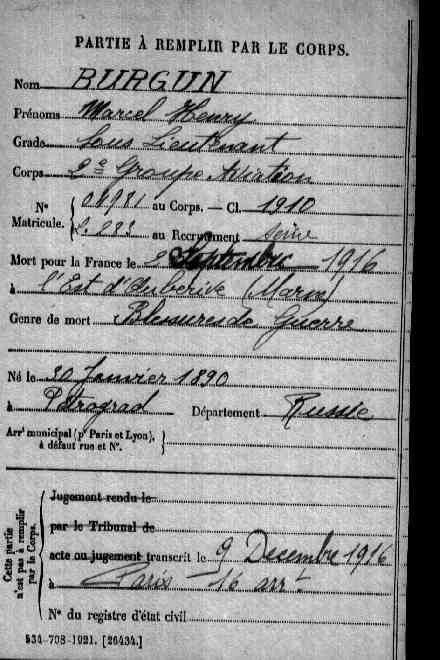 PARTIE À REMPLIR PAR LE CORPS.
Nom BURGUN
Prénoms Marcel Henry
Grade Sous Lieutenant
Corps 2e Groupe Aviation
N° 04981 au Corps. — Cl. 1910
Matricule. 283 au Recrutement Seine
Mort pour la France le 2 Septembre 1916
à l'Est d'Auberive (Marne)
Genre de mort Blessures de Guerre
Né le 30 Janvier 1890
à Pétrograd Département Russie
Arrt municipal (pr Paris et Lyon),
à défaut rue et N°.
Cette partie n'est pas à remplir par le Corps.
Jugement rendu le
par le Tribunal de
acte ou jugement transcrit le 9 Decembre 1916
à Paris - 16 arrt
N° du registre d'état civil
534-708-1921. [26434.]